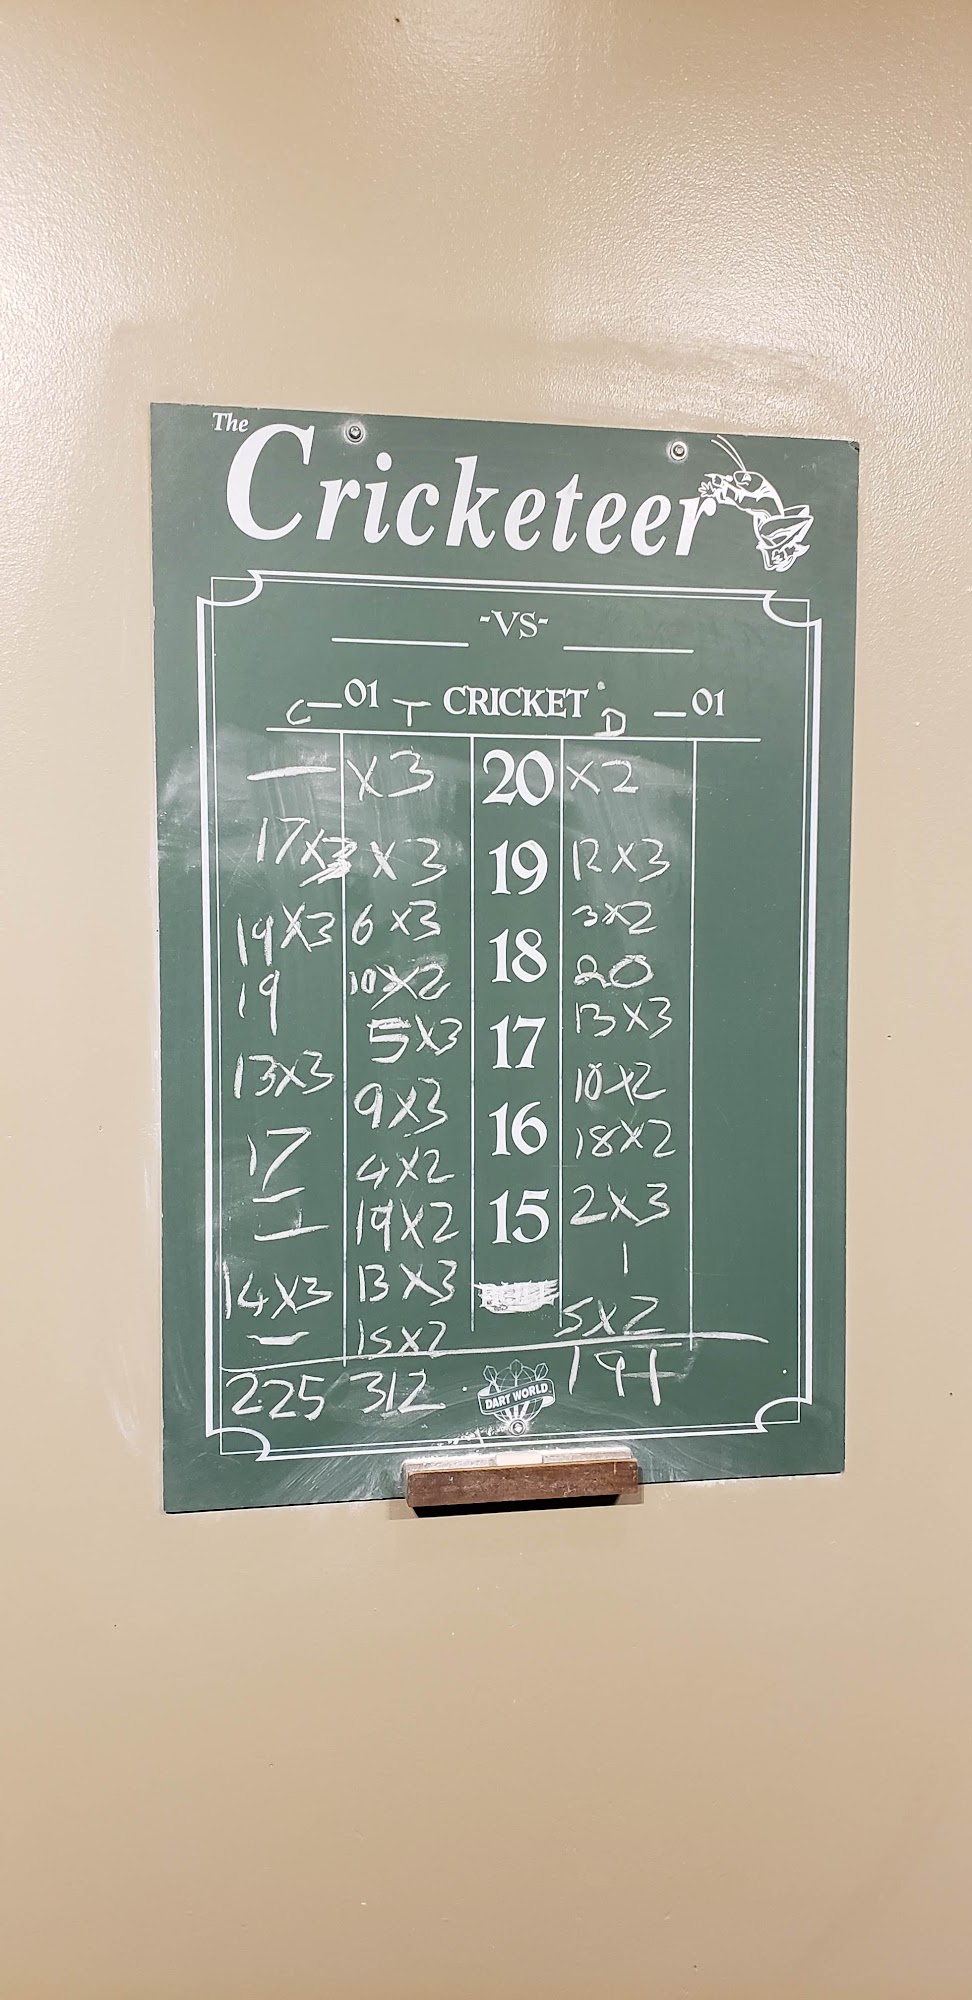 The
Cricketeer
-VS-
_01 CRICKET _01
C T D
— x3 20 x2
17x3 x3 19 12x3
19x3 6x3 18 3x2
19 10x2 20
13x3 5x3 17 13x3
17 9x3 16 10x2
— 4x2 18x2
— 19x2 15 2x3
14x3 13x3 1
— 15x2 5x2
225 312 191
DART WORLD